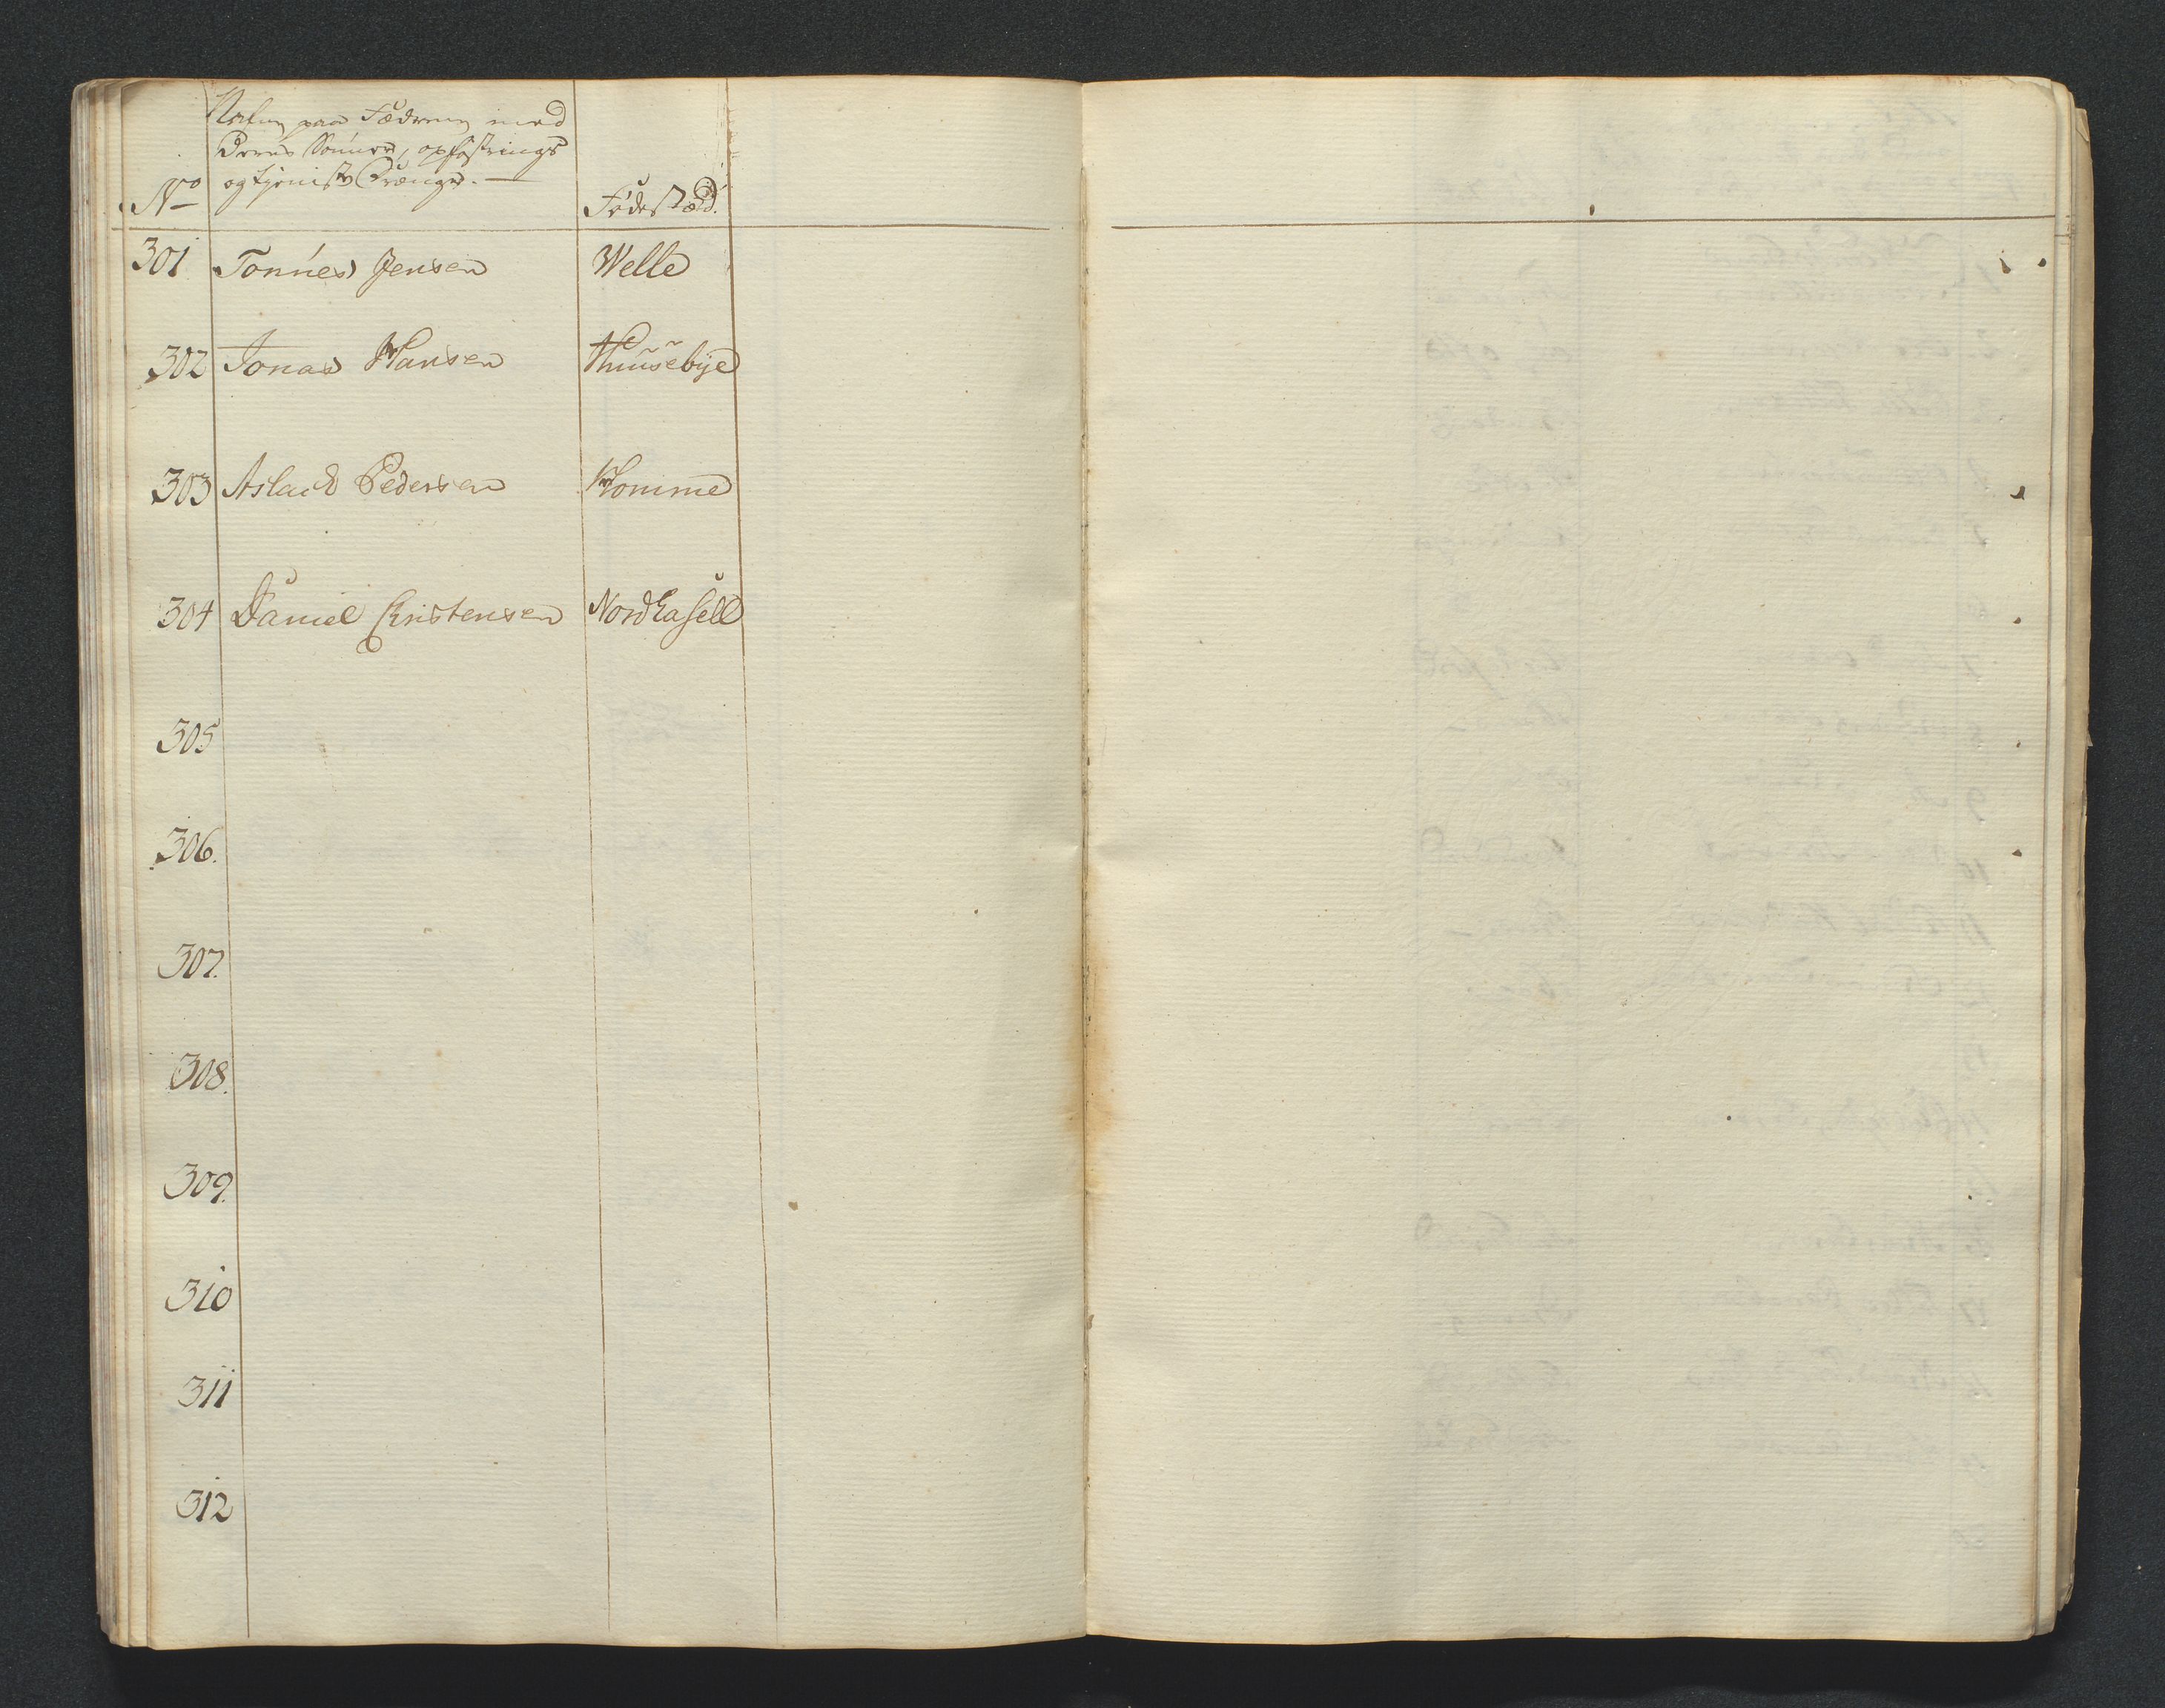 Nafn paa Fædrene med
Deres Sønner, opfostrings
og tjeniste Drænge.
No Fødestæd.
301 Tønnes Jensen Welle
302 Jonas Hansen Huusebye
303 Aslach Pedersen Homme
304 Daniel Christensen Nordhasell
305
306.
307.
308.
309.
310
311
312